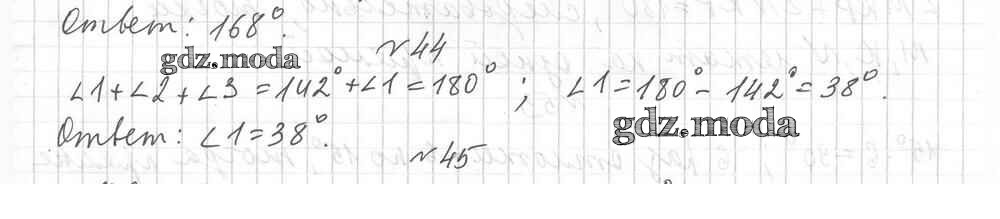 Ответ: 168°.
№ 44
gdz.moda
∠1+∠2+∠3=142°+∠1=180° ; ∠1=180°-142°=38°.
gdz.moda
Ответ: ∠1=38°.
№ 45